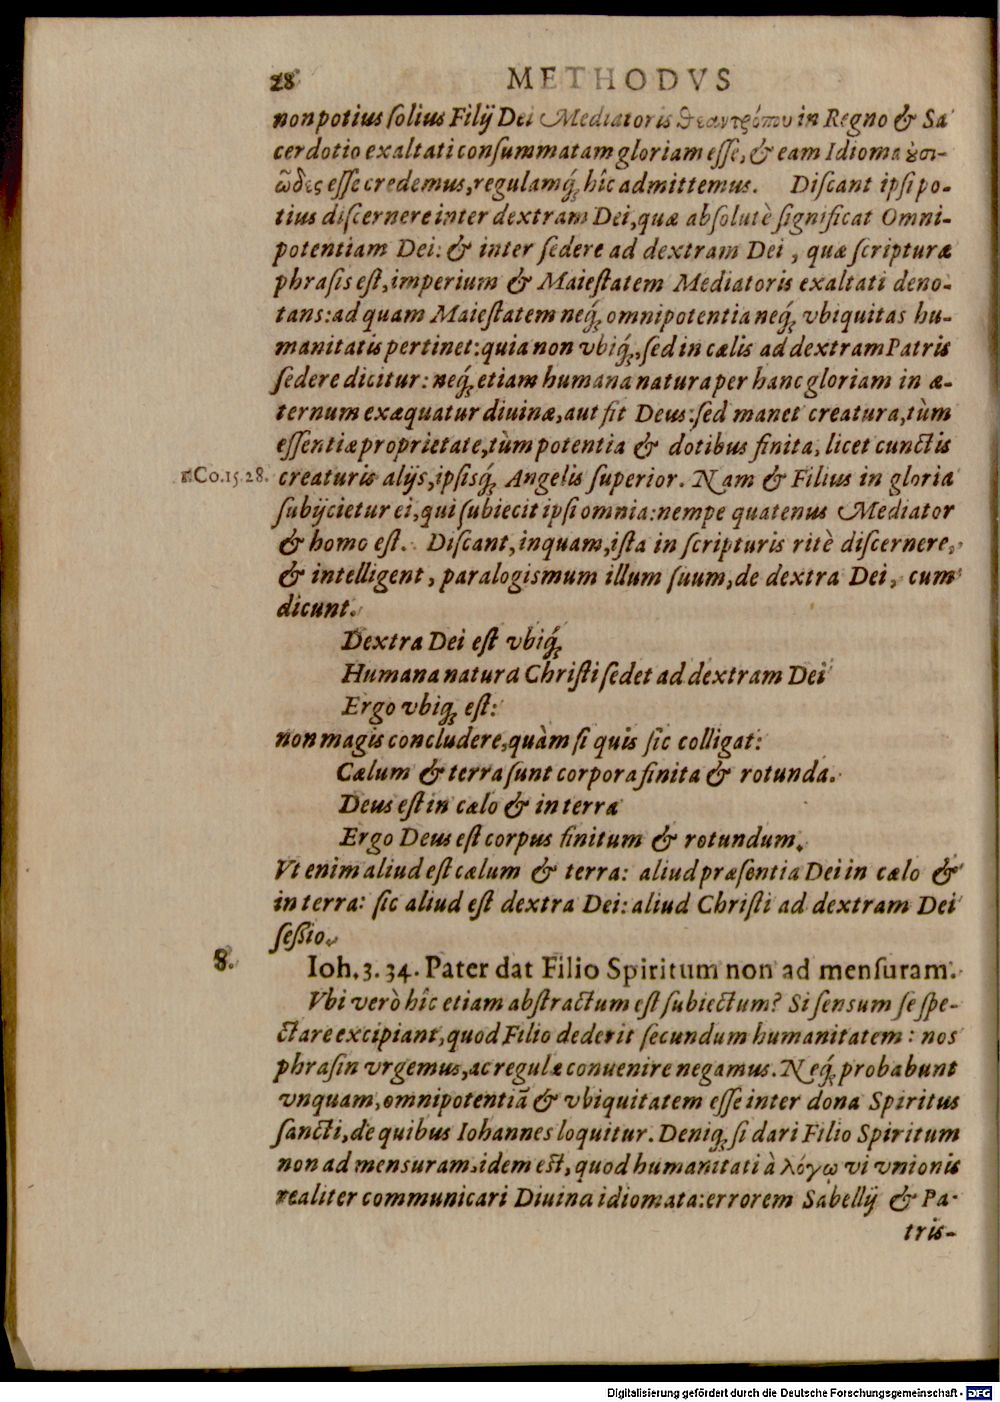 28 METHODVS
non potius ſolius Filij Dei Mediatoris θεαντρόπου in Regno & Sa
cerdotio exaltati conſummatam gloriam eſſe, & eam Idioma ȣσι-
ῶδες eſſe credemus, regulamq́; hîc admittemus. Diſcant ipſi po-
tius diſcernere inter dextram Dei, quæ abſolutè ſignificat Omni-
potentiam Dei: & inter ſedere ad dextram Dei, quæ ſcripturæ
phraſis eſt, imperium & Maieſtatem Mediatoris exaltati deno-
tans: ad quam Maieſtatem neq́; omnipotentia neq́; vbiquitas hu-
manitatis pertinet: quia non vbiq́;, ſed in cælis ad dextram Patris
ſedere dicitur: neq́; etiam humana natura per hanc gloriam in æ-
ternum exæquatur diuinæ, aut fit Deus: ſed manet creatura, tùm
eſſentiæ proprietate, tùm potentia & dotibus finita, licet cunctis
1.Co.15.28. creaturis alijs, ipſisq́; Angelis ſuperior. Nam & Filius in gloria
ſubijcietur ei, qui ſubiecit ipſi omnia: nempe quatenus Mediator
& homo eſt. Diſcant, inquam, iſta in ſcripturis ritè diſcernere,
& intelligent, paralogismum illum ſuum, de dextra Dei, cum
dicunt.
Dextra Dei eſt vbiq́;
Humana natura Chriſti ſedet ad dextram Dei
Ergo vbiq; eſt:
non magis concludere, quàm ſi quis ſic colligat:
Cælum & terra ſunt corpora finita & rotunda.
Deus eſt in cælo & in terra
Ergo Deus eſt corpus finitum & rotundum.
Vt enim aliud eſt cælum & terra: aliud præſentia Dei in cælo &
in terra: ſic aliud eſt dextra Dei: aliud Chriſti ad dextram Dei
ſeßio.
8. Ioh. 3. 34. Pater dat Filio Spiritum non ad menſuram.
Vbi verò hîc etiam abſtractum eſt ſubiectum? Si ſenſum ſe ſpe-
ctare excipiant, quod Filio dederit ſecundum humanitatem: nos
phraſin vrgemus, ac regulæ conuenire negamus. Neq́; probabunt
vnquam, omnipotentiã & vbiquitatem eſſe inter dona Spiritus
ſancti, de quibus Iohannes loquitur. Deniq; ſi dari Filio Spiritum
non ad menſuram, idem eſt, quod humanitati à λόγῳ vi vnionis
realiter communicari Diuina idiomata: errorem Sabellij & Pa-
tris-
Digitalisierung gefördert durch die Deutsche Forschungsgemeinschaft - DFG